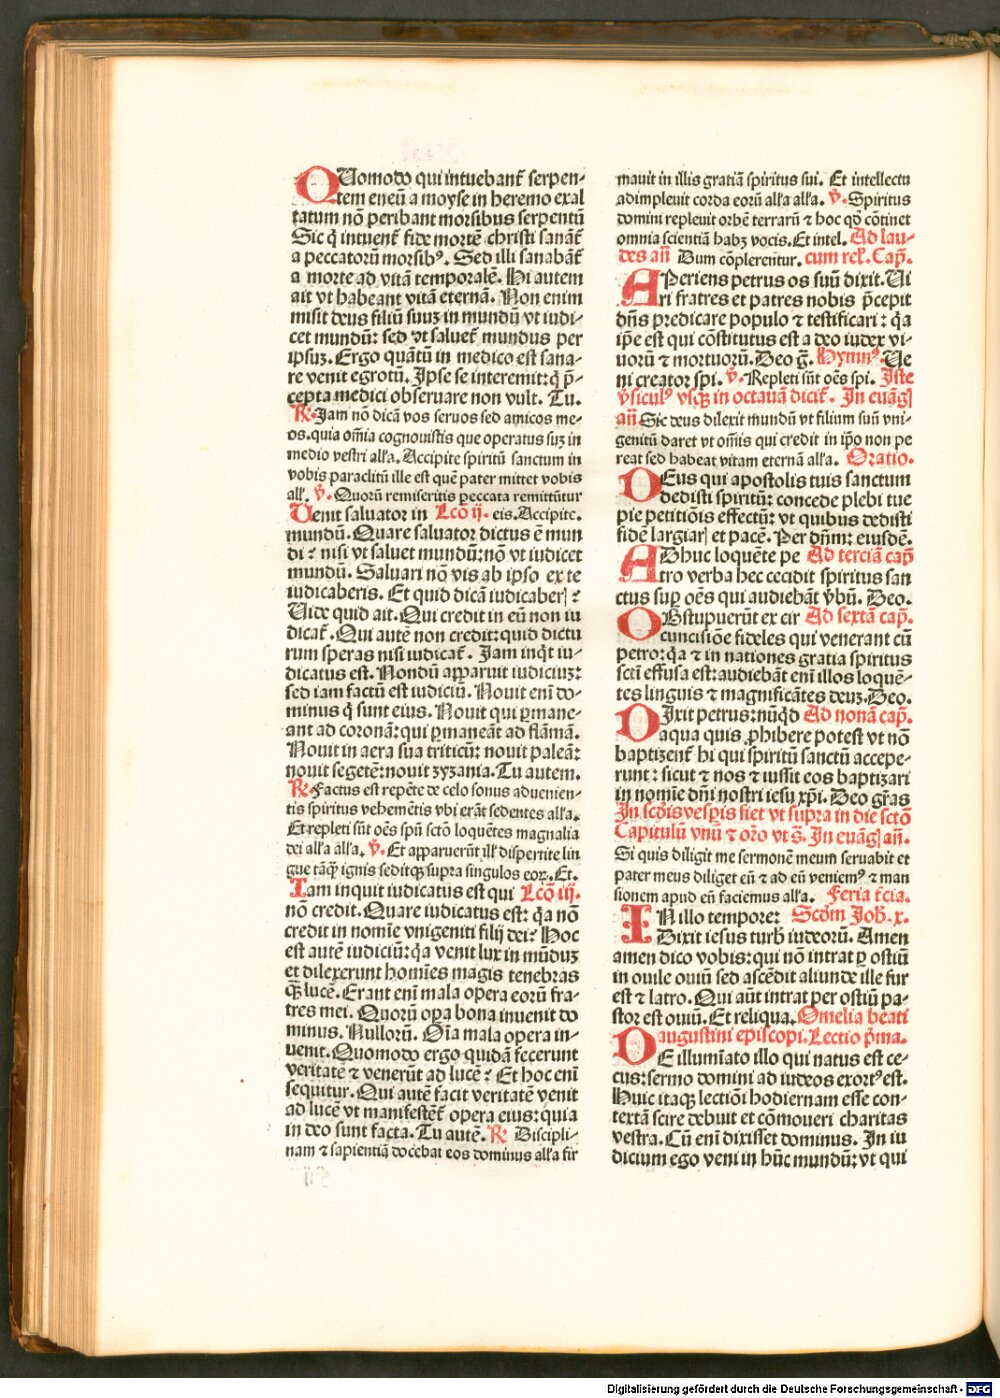 QUomodo qui intuebant᷑ serpen-
tem eneū a moyse in heremo exal
tatum nō peribant morsibus serpentū
Sic q̇ intuent᷑ fide mortē christi sanāt᷑
a peccatorū morsibꝰ. Sed illi sanabāt᷑
a morte ad vitā temporalē. Hi autem
ait vt habeant vitā eternā. Non enim
misit deus filiū suuꝫ in mundū vt iudi-
cet mundū: sed vt saluet᷑ mundus per
ipsuꝫ. Ergo quātū in medico est sana-
re venit egrotū. Ipse se interemit: q̇ p̄-
cepta medici obseruare non vult. Tu.
℟. Jam nō dicā vos seruos sed amicos me-
os. quia om̄ia cognouistis que operatus suꝫ in
medio vestri alľa. Accipite spiritū sanctum in
vobis paraclitū ille est quē pater mittet vobis
alľ. ℣. Quorū remiseritis peccata remittūtur
Uenit saluator in Lcō ij. eis. Accipite.
mundū. Quare saluator dictus ē mun
di? nisi vt saluet mundū: nō vt iudicet
mundū. Saluari nō vis ab ipso ex te
iudicaberis. Et quid dicā iudicaberꝭ?
Uide quid ait. Qui credit in eū non iu
dicat᷑. Qui autē non credit: quid dictu
rum speras nisi iudicat᷑. Jam inq̇t iu-
dicatus est. Nondū apparuit iudiciuꝫ:
sed iam factū est iudiciū. Nouit eni do-
minus q̇ sunt eius. Nouit qui ꝑmane-
ant ad coronā: qui ꝑmaneāt ad flāmā.
Nouit in aera sua triticū: nouit paleā:
nouit segetē: nouit zyzania. Tu autem.
℟. Factus est repēte de celo sonus aduenien-
tis spiritus vehemētis vbi erāt sedentes alľa.
Et repleti sūt oēs spū sctō loquētes magnalia
dei alľa alľa. ℣. Et apparuerūt ilľ dispertite lin
gue tāꝙ ignis seditqꝫ supra singulos eoꝝ. Et.
Iam inquit iudicatus est qui Lcō iij.
nō credit. Quare iudicatus est: q̇a nō
credit in nomīe vnigeniti filij dei? Hoc
est autē iudiciū: q̇a venit lux in mūduꝫ
et dilexerunt homīes magis tenebras
ꝙ̄ lucē. Erant eni mala opera eorū fra-
tres mei. Quorū oꝑa bona inuenit do
minus. Nullorū. Oīa mala opera in-
uenit. Quomodo ergo quidā fecerunt
veritatē ⁊ venerūt ad lucē? Et hoc eni
sequitur. Qui autē facit veritatē venit
ad lucē vt manifestēt᷑ opera eius: quia
in deo sunt facta. Tu autē. ℟ Discipli-
nam ⁊ sapientiā docebat eos dominus alľa fir
mauit in illis gratiā spiritus sui. Et intellectu
adimpleuit corda eorū alľa alľa. ℣. Spiritus
domini repleuit orbē terrarū ⁊ hoc qď cōtinet
omnia scientiā habꝫ vocis. Et intel. Ad lau-
des an̄ Dum cōplerentur. cum rel᷑. Cap̄.
APeriens petrus os suū dixit. Ui
ri fratres et patres nobis p̄cepit
dn̄s predicare populo ⁊ testificari: q̇a
ip̄e est qui cōstitutus est a deo iudex vi-
uorū ⁊ mortuorū. Deo g̅. Hymnꝰ. Ue
ni creator spi. ℣. Repleti sūt oēs spi. Iste
v̓siculꝰ vsqꝫ in octauā dicit᷑. In euāgꝭ
an̄ Sic deus dilexit mundū vt filium suū vni-
genitū daret vt om̄is qui credit in ip̄o non pe
reat sed habeat vitam eternā alľa. Oratio.
DEus qui apostolis tuis sanctum
dedisti spiritū: concede plebi tue
pie petitiōis effectū: vt quibus dedisti
fidē largiarꝭ et pacē. Per dn̄m: eiusdē.
ADhuc loquēte pe Ad terciā cap̄
tro verba hec cecidit spiritus san
ctus suꝑ oēs qui audiebāt v̓bū. Deo.
OBstupuerūt ex cir Ad sextā cap̄.
cuncisiōe fideles qui venerant cū
petro: q̇a ⁊ in nationes gratia spiritus
sctī effusa est: audiebāt eni illos loquē-
tes linguis ⁊ magnificātes deuꝫ. Deo.
DIxit petrus: nūq̇d Ad nonā cap̄.
aqua quis ꝓhibere potest vt nō
baptizent᷑ hi qui spiritū sanctū accepe-
runt: sicut ⁊ nos ⁊ iussit eos baptizari
in nomīe dn̄i nostri iesu xp̄i. Deo gr̄as
In scďis vesꝑis fiet vt supra in die sctō
Capitulū vnū ⁊ or̄o vt s̄. In euāgꝭ an̄.
Si quis diligit me sermonē meum seruabit et
pater meus diliget eū ⁊ ad eū veniemꝰ ⁊ man
sionem apud eū faciemus alľa. Feria t᷑cia.
IN illo tempore: Scďm Joh̄. x.
Dixit iesus turb᷑ iudeorū. Amen
amen dico vobis: qui nō intrat ꝑ ostiū
in ouile ouiū sed ascēdit aliunde ille fur
est ⁊ latro. Qui aūt intrat per ostiū pa-
stor est ouiū. Et reliqua. Omelia beati
augustini episcopi. Lectio p̄ma.
DE illumīato illo qui natus est ce-
cus: sermo domini ad iudeos exortꝰ est.
Huic itaqꝫ lectiōi hodiernam esse con-
textā scire debuit et cōmoueri charitas
vestra. Cū eni dixisset dominus. In iu
dicium ego veni in hūc mundū: vt qui
Digitalisierung gefördert durch die Deutsche Forschungsgemeinschaft - DFG